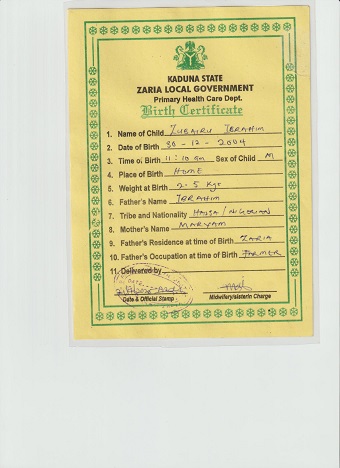 KADUNA STATE
ZARIA LOCAL GOVERNMENT
Primary Health Care Dept.
Birth Certificate
1. Name of Child ZUBAIRU IBRAHIM
2. Date of Birth 30-12-2004
3. Time of Birth 11:10 am Sex of Child M
4. Place of Birth HOME
5. Weight at Birth 2.5 Kgs
6. Father's Name IBRAHIM
7. Tribe and Nationality HAUSA / NIGERIAN
8. Mother's Name MARYAM
9. Father's Residence at time of Birth ZARIA
10. Father's Occupation at time of Birth FARMER
11. Delivered by
Date & Official Stamp Midwifery/sisterin Charge